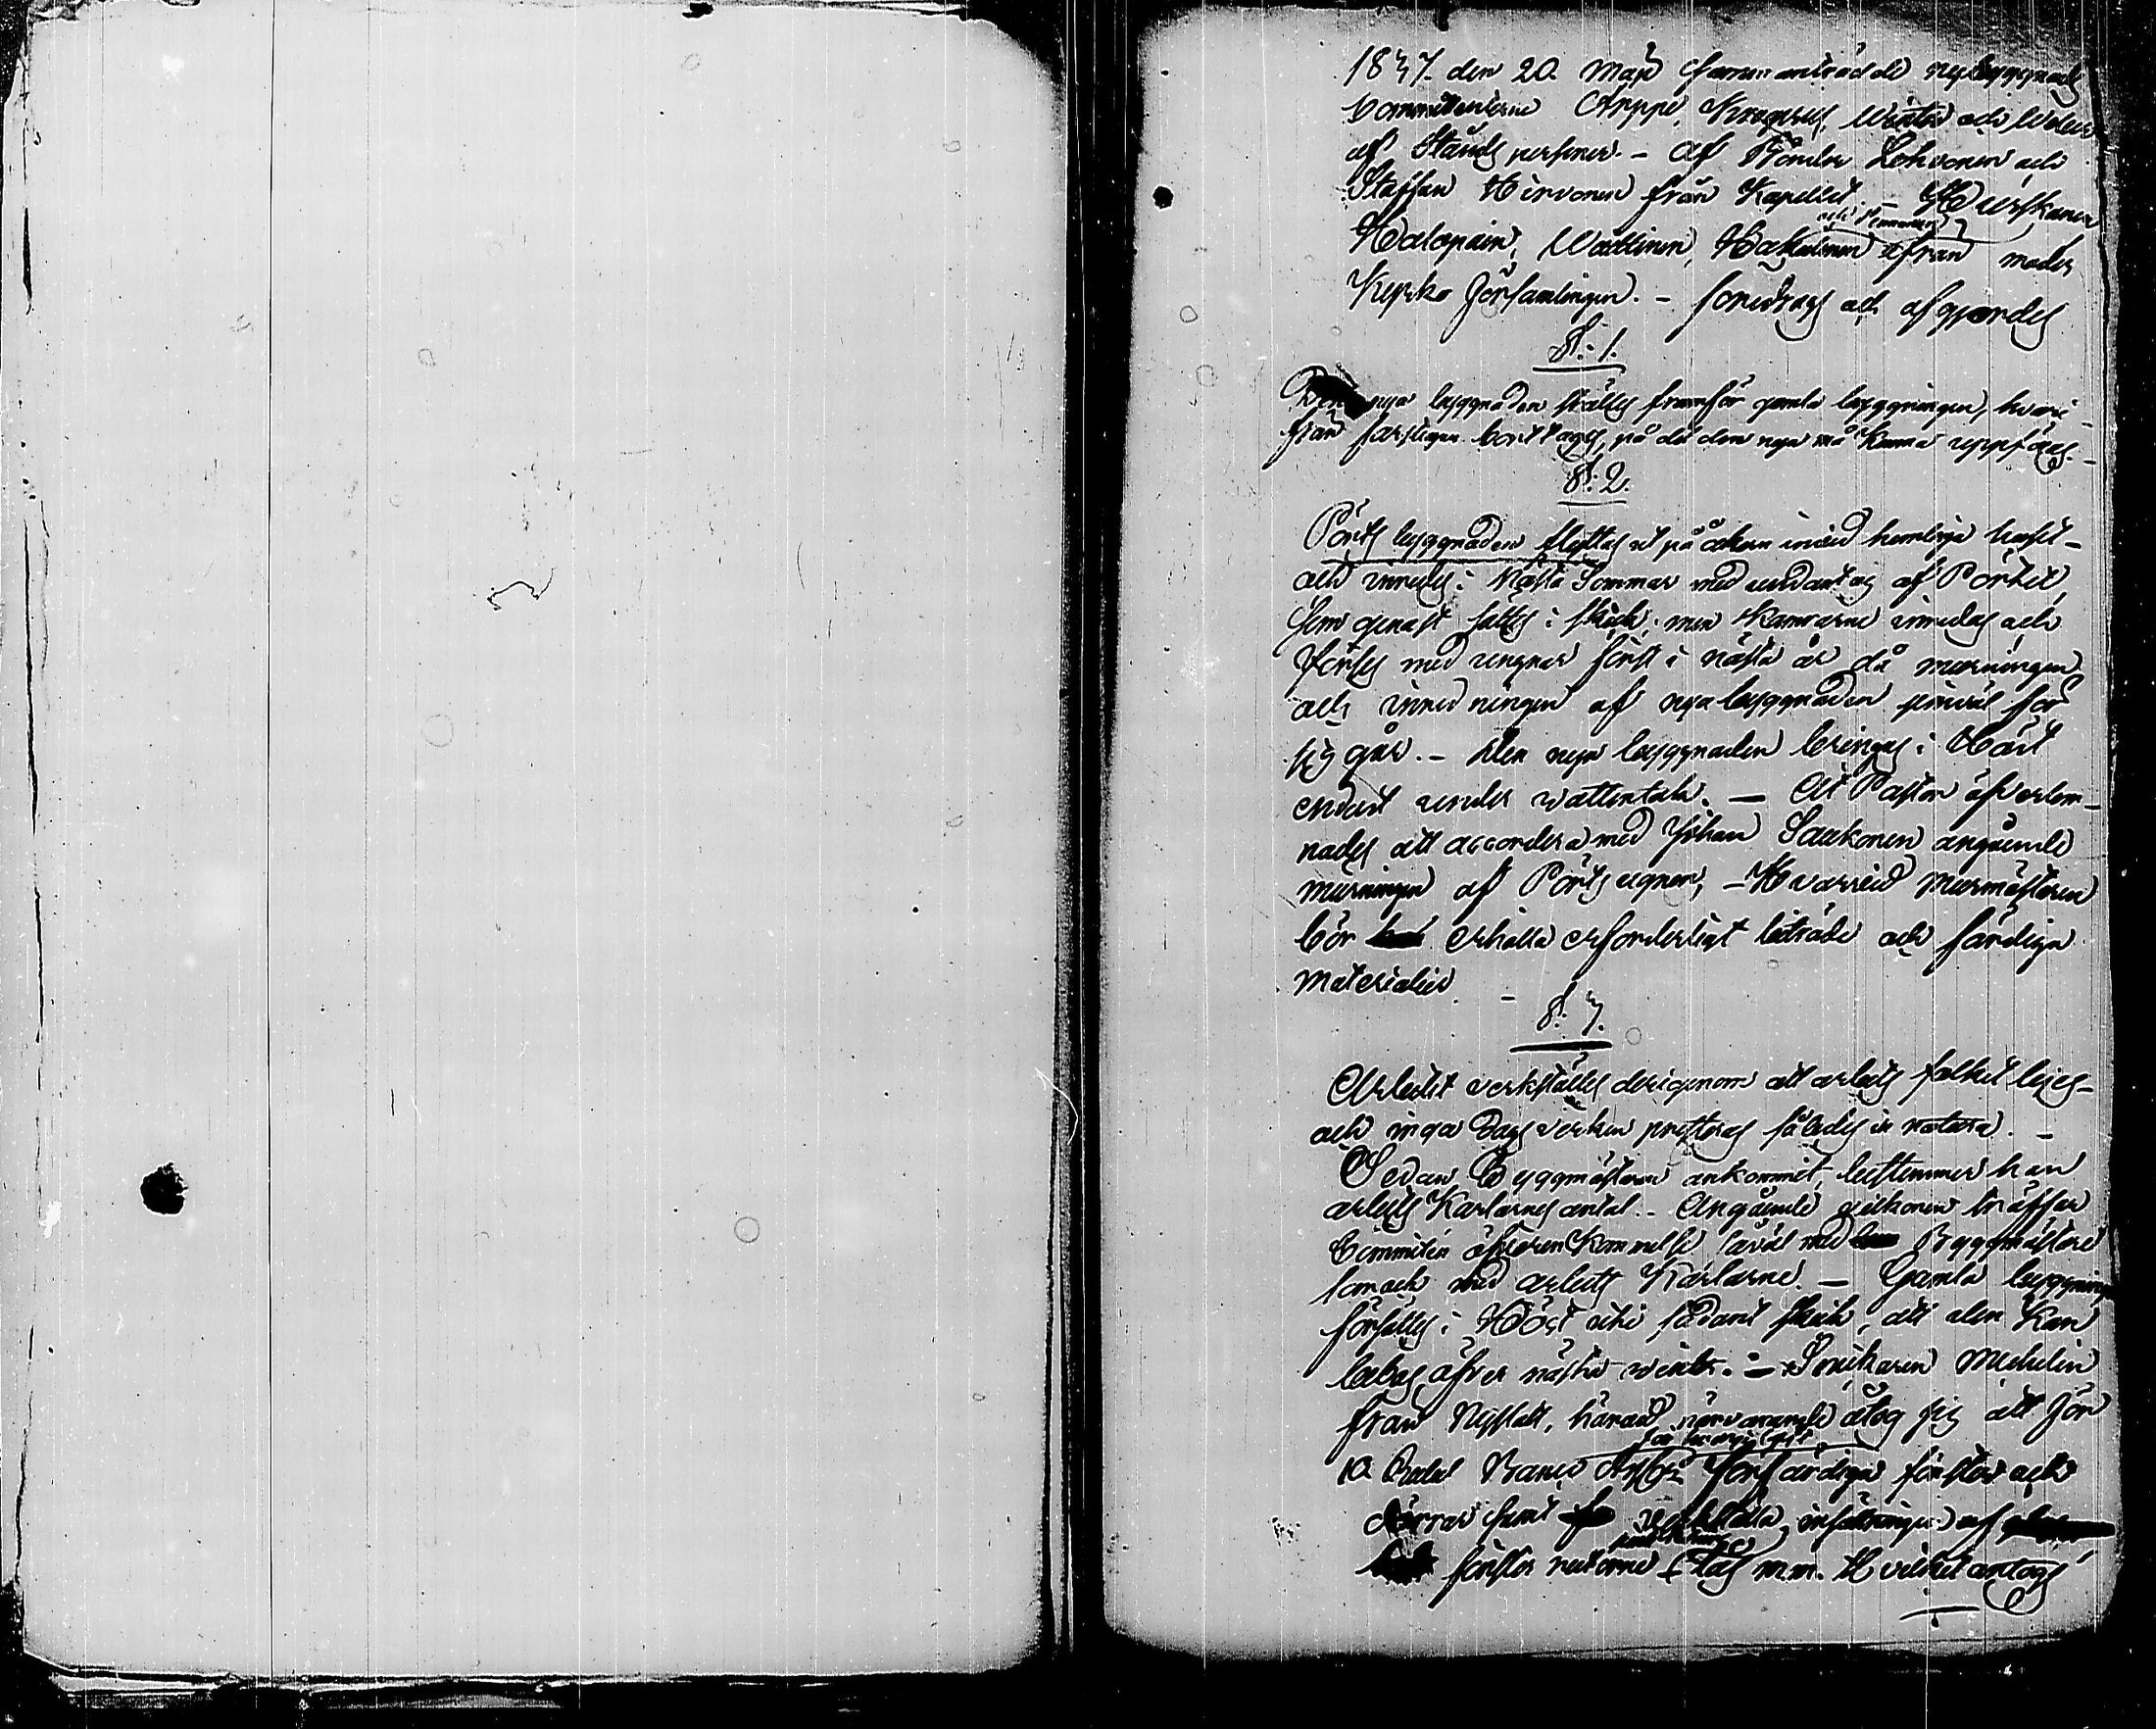 1837. den 20. Maji sammanträdde nybyggnads
Committeerne Arppe, Krogerus, Winter och
af Stånds personer. – af Bönder Lohvonen och
Staffan Hirvonen från Kapellet. – Hurskanen
Halopain, Wäätinen, Hakulinen från moder
Kyrko församlingen. – föredrogs och afgjordes
§. 1.
nya byggnaden ställes framför gamla byggningen, hvari-
från farstugen borttages, på det den nya må kunna uppföras. –
§. 2.
Pörts byggnaden flyttas ut på åkern invid humlegårds
och inredes i nästa Sommar med undantag af Pörtet,
som genast sättes i skick; men Kamrarne inredas och
förses med ungnar först i nästa år då murningen
och inredningen af nya byggnaden jemväl för
sig går. – Den nya byggnaden bringas i Höst
endast under vattentak. – At Pastor öfverlem-
nades att accordera med Johan Saukonen angående
murningen af Pörts ugnen, – Hvarvid murmästaren
bör erhålla erforderligt biträde och färdiga
materialier –
§. 3.
Arbetet verkställes derigenom att arbets folket lejes –
och inga Dagsverken presteras således in natura. –
Sedan Byggmästaren ankommit, bestämmer han
arbets Karlarnes antal. – Angående vilkoren träffar
Committén öfverenskommelse såväl med Byggmästare
som ock med arbets Karlarne. – Gamla byggningen
försättes i Höst uti sådant skick, att den Kan
bebos öfver nästa vinter. – Snickaren Michelin
från Nyslott, härvid närvarande åtog sig att för
10 Rubel Banco Assign: förfärdiga fönster och
dörrar samt verkställa insättningen af
fönster rutorne m.m. Hvilket antogs